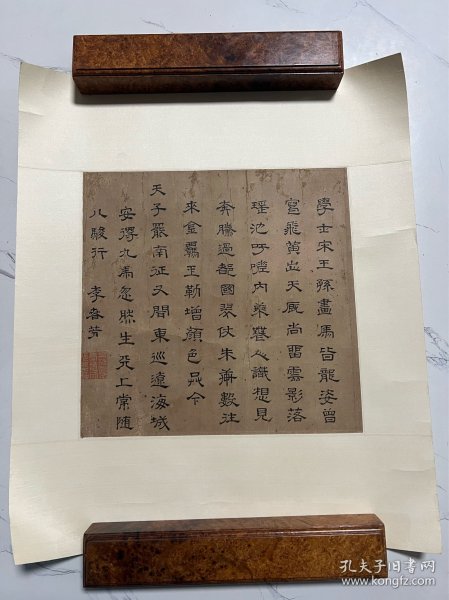 學士宋王孫畫馬皆龍姿曾
窺飛黃出天厩尚留雲影落
瑤池呼噏內藥
心識想見
奔騰過都國翠仗朱旂數往
來金羈玉勒增顏色茲今
天子嚴南征又聞東巡遠海城
安得九馬忽然生死上常隨
八駿行 李春芳
孔夫子旧书网
www.kongfz.com